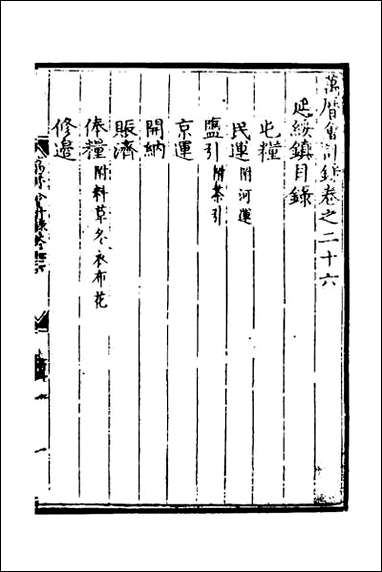 萬曆會計錄卷之二十六
延綏鎮目錄
屯糧
民運附河運
鹽引附茶引
京運
開納
賑濟
俸糧附料草冬衣布花
修邊